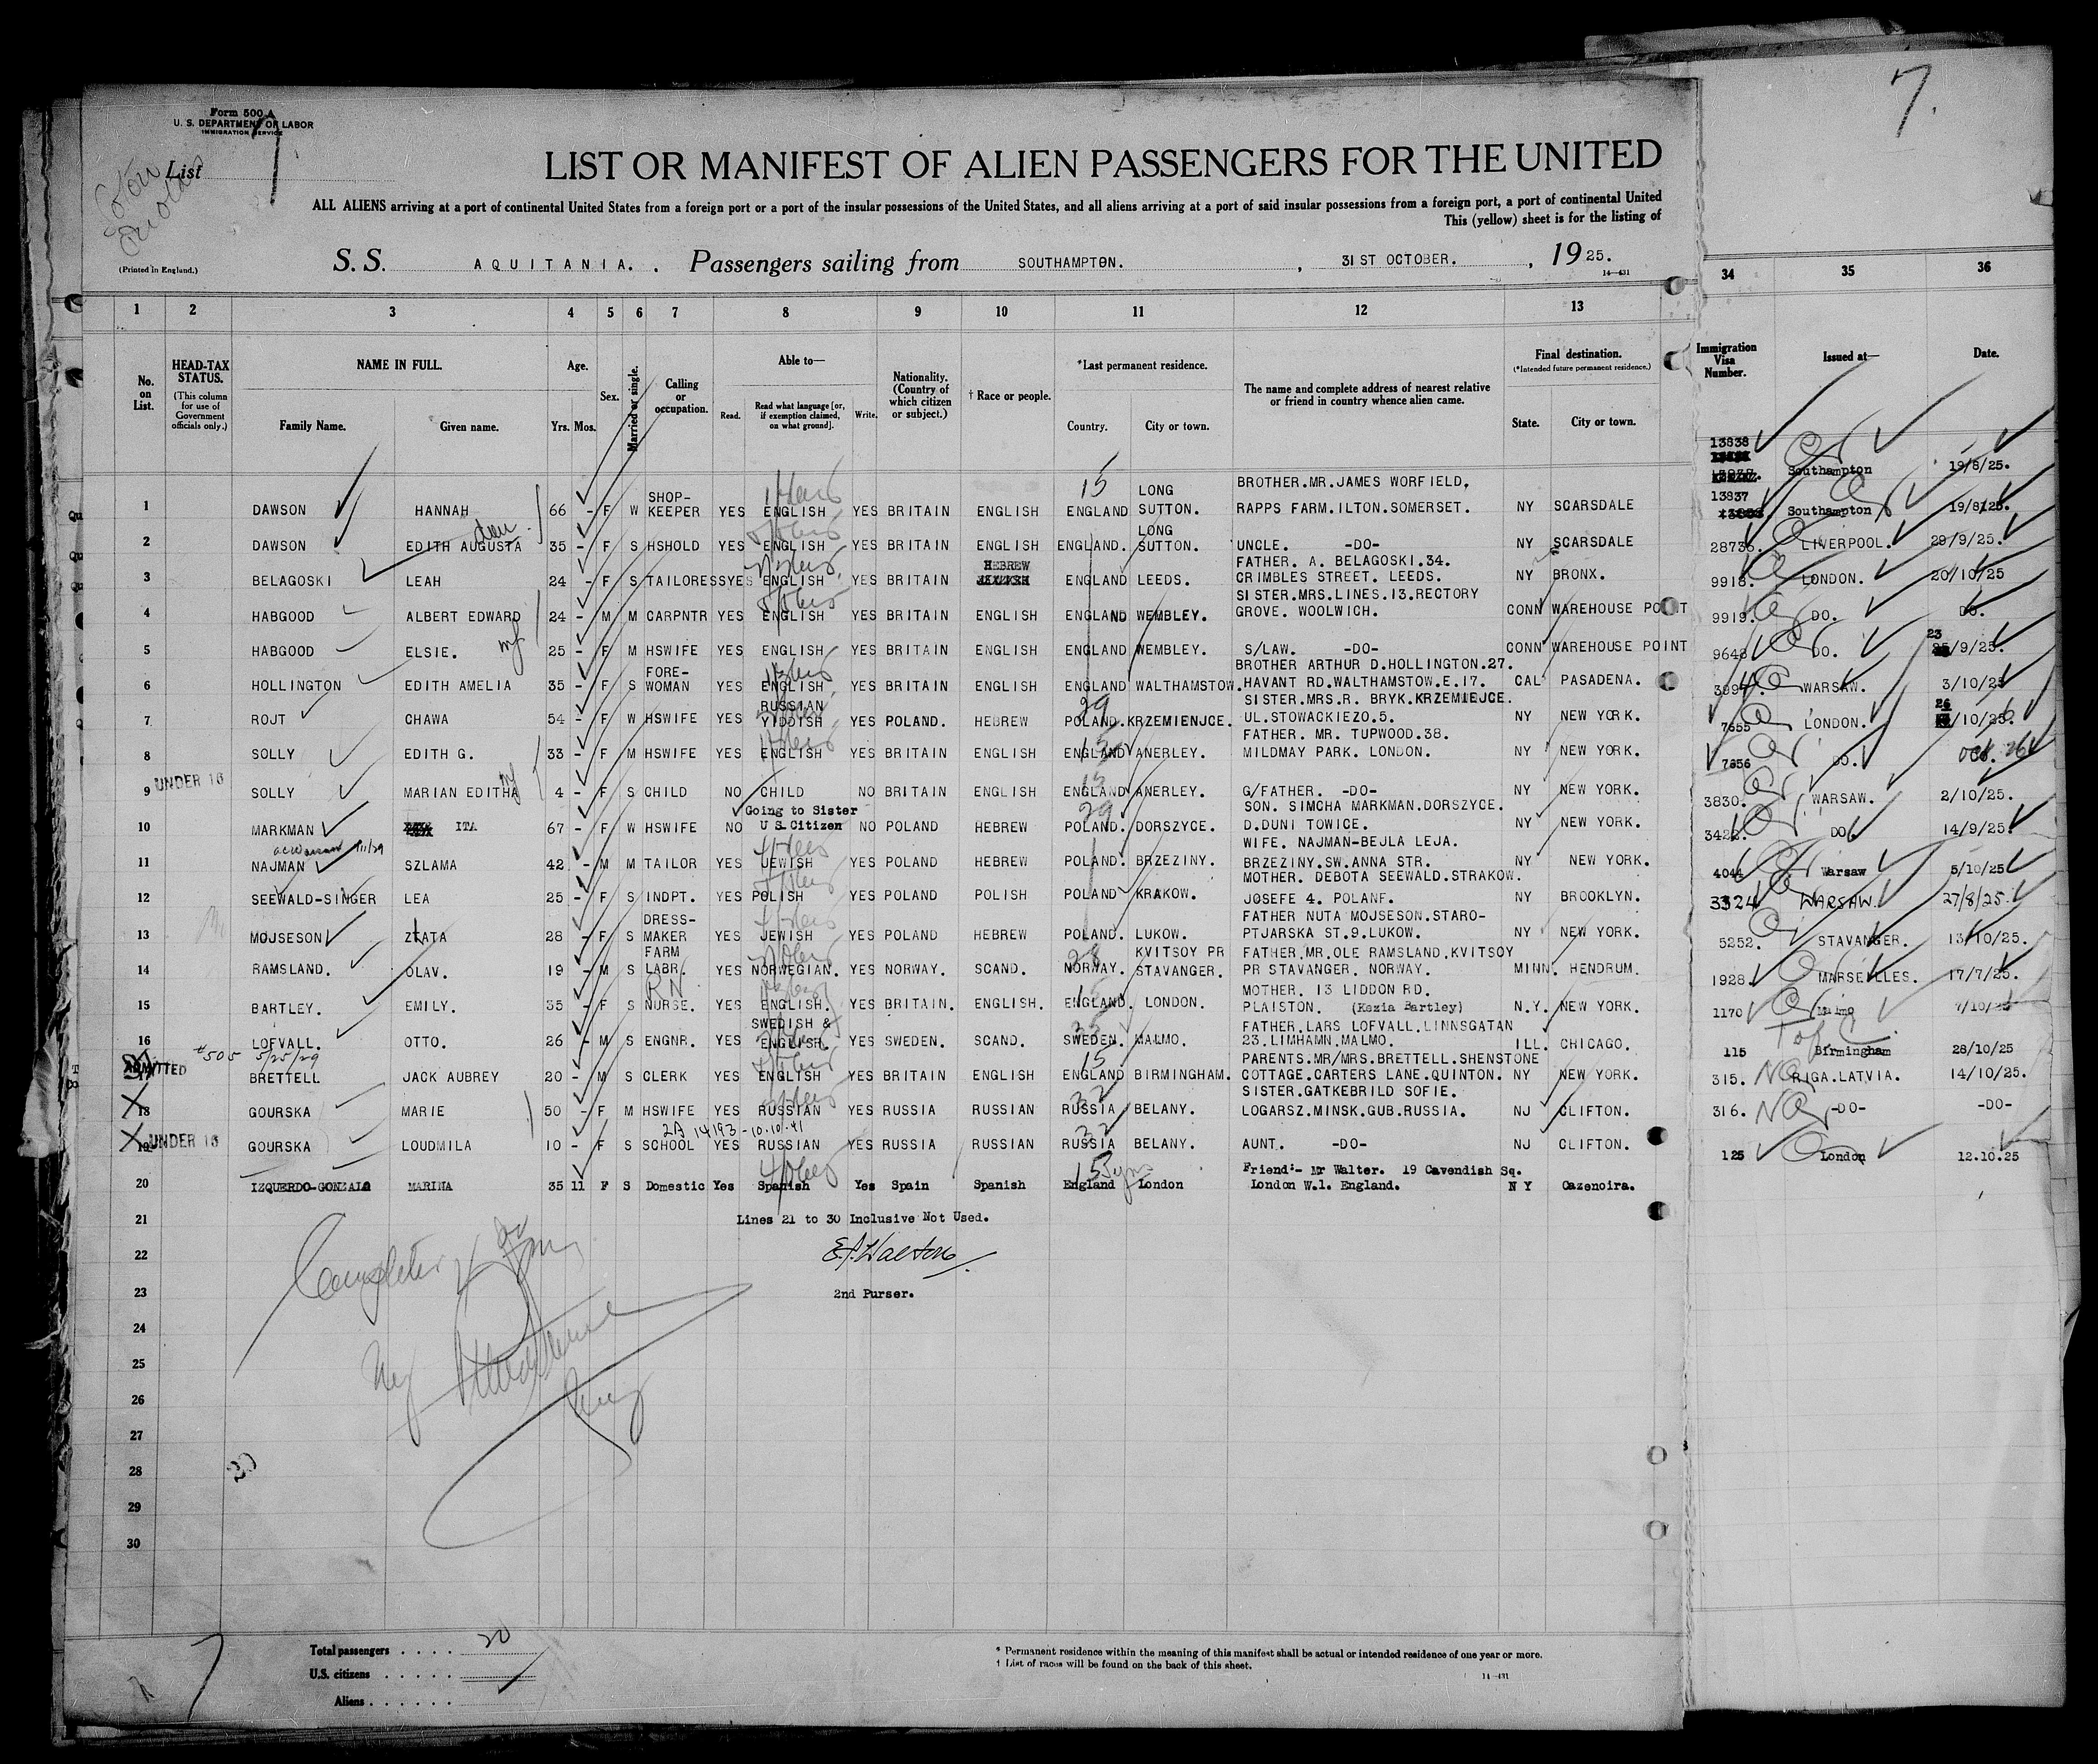 7.
Form 500 A
U. S. DEPARTMENT OF LABOR
IMMIGRATION SERVICE
List 7
LIST OR MANIFEST OF ALIEN PASSENGERS FOR THE UNITED
ALL ALIENS arriving at a port of continental United States from a foreign port or a port of the insular possessions of the United States, and all aliens arriving at a port of said insular possessions from a foreign port, a port of continental United
This (yellow) sheet is for the listing of
(Printed in England.)
S. S. AQUITANIA. Passengers sailing from SOUTHAMPTON. , 31ST OCTOBER. , 1925.
14—431
1 2 3 4 5 6 7 8 9 10 11 12 13 34 35 36
No. on List.
HEAD-TAX STATUS. (This column for use of Government officials only.)
NAME IN FULL. Family Name. Given name.
Age. Yrs. Mos.
Sex.
Married or single.
Calling or occupation.
Able to— Read. Read what language [or, if exemption claimed, on what ground]. Write.
Nationality. (Country of which citizen or subject.)
† Race or people.
*Last permanent residence. Country. City or town.
The name and complete address of nearest relative or friend in country whence alien came.
Final destination. (*Intended future permanent residence.) State. City or town.
Immigration Visa Number.
Issued at—
Date.
13838 Southampton 19/8/25.
1 DAWSON HANNAH 66 - F W SHOP-KEEPER YES ENGLISH YES BRITAIN ENGLISH ENGLAND LONG SUTTON. BROTHER.MR.JAMES WORFIELD, RAPPS FARM.ILTON.SOMERSET. NY SCARSDALE
13837 Southampton 19/8/25.
2 DAWSON EDITH AUGUSTA 35 - F S HSHOLD YES ENGLISH YES BRITAIN ENGLISH ENGLAND. LONG SUTTON. UNCLE. -DO- NY SCARSDALE
28736. LIVERPOOL. 29/9/25.
3 BELAGOSKI LEAH 24 - F S TAILORESS YES ENGLISH YES BRITAIN HEBREW ENGLAND LEEDS. FATHER. A. BELAGOSKI.34. CRIMBLES STREET. LEEDS. NY BRONX.
9918. LONDON. 20/10/25
4 HABGOOD ALBERT EDWARD 24 - M M CARPNTR YES ENGLISH YES BRITAIN ENGLISH ENGLAND WEMBLEY. SISTER.MRS.LINES.13.RECTORY GROVE. WOOLWICH. CONN WAREHOUSE POINT
9919. DO. DO.
5 HABGOOD ELSIE. 25 - F M HSWIFE YES ENGLISH YES BRITAIN ENGLISH ENGLAND WEMBLEY. S/LAW. -DO- CONN WAREHOUSE POINT
9648 DO. 23/9/25.
6 HOLLINGTON EDITH AMELIA 35 - F S FORE-WOMAN YES ENGLISH YES BRITAIN ENGLISH ENGLAND WALTHAMSTOW. BROTHER ARTHUR D.HOLLINGTON.27. HAVANT RD.WALTHAMSTOW.E.17. CAL PASADENA.
WARSAW. 3/10/25
7 ROJT CHAWA 54 - F W HSWIFE YES RUSSIAN YIDDISH YES POLAND. HEBREW POLAND. KRZEMIENJCE. SISTER.MRS.R. BRYK.KRZEMIEJCE. UL.STOWACKIEZO.5. NY NEW YORK.
7655 LONDON. 26/10/25.
8 SOLLY EDITH G. 33 - F M HSWIFE YES ENGLISH YES BRITAIN ENGLISH ENGLAND ANERLEY. FATHER. MR. TUPWOOD.38. MILDMAY PARK. LONDON. NY NEW YORK.
7656 DO. Oct. 26
UNDER 16
9 SOLLY MARIAN EDITHA 4 - F S CHILD NO CHILD NO BRITAIN ENGLISH ENGLAND ANERLEY. G/FATHER. -DO- NY NEW YORK.
3830. WARSAW. 2/10/25.
10 MARKMAN ITA 67 - F W HSWIFE NO Going to Sister U S Citizen NO POLAND HEBREW POLAND. DORSZYCE. SON. SIMCHA MARKMAN.DORSZYCE. D.DUNI TOWICE. NY NEW YORK.
3422. DO. 14/9/25.
11 NAJMAN SZLAMA 42 - M M TAILOR YES JEWISH YES POLAND HEBREW POLAND. BRZEZINY. WIFE. NAJMAN-BEJLA LEJA. BRZEZINY.SW.ANNA STR. NY NEW YORK.
4044 Warsaw 5/10/25
12 SEEWALD-SINGER LEA 25 - F S INDPT. YES POLISH YES POLAND POLISH POLAND KRAKOW. MOTHER. DEBOTA SEEWALD.STRAKOW. JOSEFE 4. POLANF. NY BROOKLYN.
3324 WARSAW. 27/8/25.
13 MOJSESON ZLATA 28 - F S DRESS-MAKER YES JEWISH YES POLAND HEBREW POLAND. LUKOW. FATHER NUTA MOJSESON.STARO-PTJARSKA ST.9.LUKOW. NY NEW YORK.
5252. STAVANGER. 13/10/25.
14 RAMSLAND. OLAV. 19 - M S FARM LABR. YES NORWEGIAN. YES NORWAY. SCAND. NORWAY. KVITSOY PR STAVANGER. FATHER.MR.OLE RAMSLAND.KVITSOY PR STAVANGER. NORWAY. MINN. HENDRUM.
1928. MARSEILLES. 17/7/25.
15 BARTLEY. EMILY. 35 - F S R.N. NURSE. YES ENGLISH. YES BRITAIN. ENGLISH. ENGLAND. LONDON. MOTHER. 13 LIDDON RD. PLAISTON. (Kezia Bartley) N.Y. NEW YORK.
1170 Malmo 7/10/25
16 LOFVALL. OTTO. 26 - M S ENGNR. YES SWEDISH & ENGLISH. YES SWEDEN. SCAND. SWEDEN. MALMO. FATHER.LARS LOFVALL.LINNSGATAN 23.LIMHAMN.MALMO. ILL. CHICAGO.
#505 5/25/29
115 Birmingham 28/10/25
ADMITTED
BRETTELL JACK AUBREY 20 - M S CLERK YES ENGLISH YES BRITAIN ENGLISH ENGLAND BIRMINGHAM. PARENTS.MR/MRS.BRETTELL.SHENSTONE COTTAGE.CARTERS LANE.QUINTON. NY NEW YORK.
315. RIGA.LATVIA. 14/10/25.
18 GOURSKA MARIE 50 - F M HSWIFE YES RUSSIAN YES RUSSIA RUSSIAN RUSSIA BELANY. SISTER.GATKEBRILD SOFIE. LOGARSZ.MINSK.GUB.RUSSIA. NJ CLIFTON.
316. -DO- -DO-
2A 14193 - 10.10.41
UNDER 16
19 GOURSKA LOUDMILA 10 - F S SCHOOL YES RUSSIAN YES RUSSIA RUSSIAN RUSSIA BELANY. AUNT. -DO- NJ CLIFTON.
125 London 12.10.25
20 IZQUERDO-GONZALO MARINA 35 11 F S Domestic Yes Spanish Yes Spain Spanish England London Friend:- Mr Walter. 19 Cavendish Sq. London W.1. England. N Y Cazenoira.
21 Lines 21 to 30 Inclusive Not Used.
22
23 2nd Purser.
24
25
26
27
28
29
30
Total passengers . . . . 20
U.S. citizens . . . . .
Aliens . . . . . .
* Permanent residence within the meaning of this manifest shall be actual or intended residence of one year or more.
† List of races will be found on the back of this sheet.
14—431
7